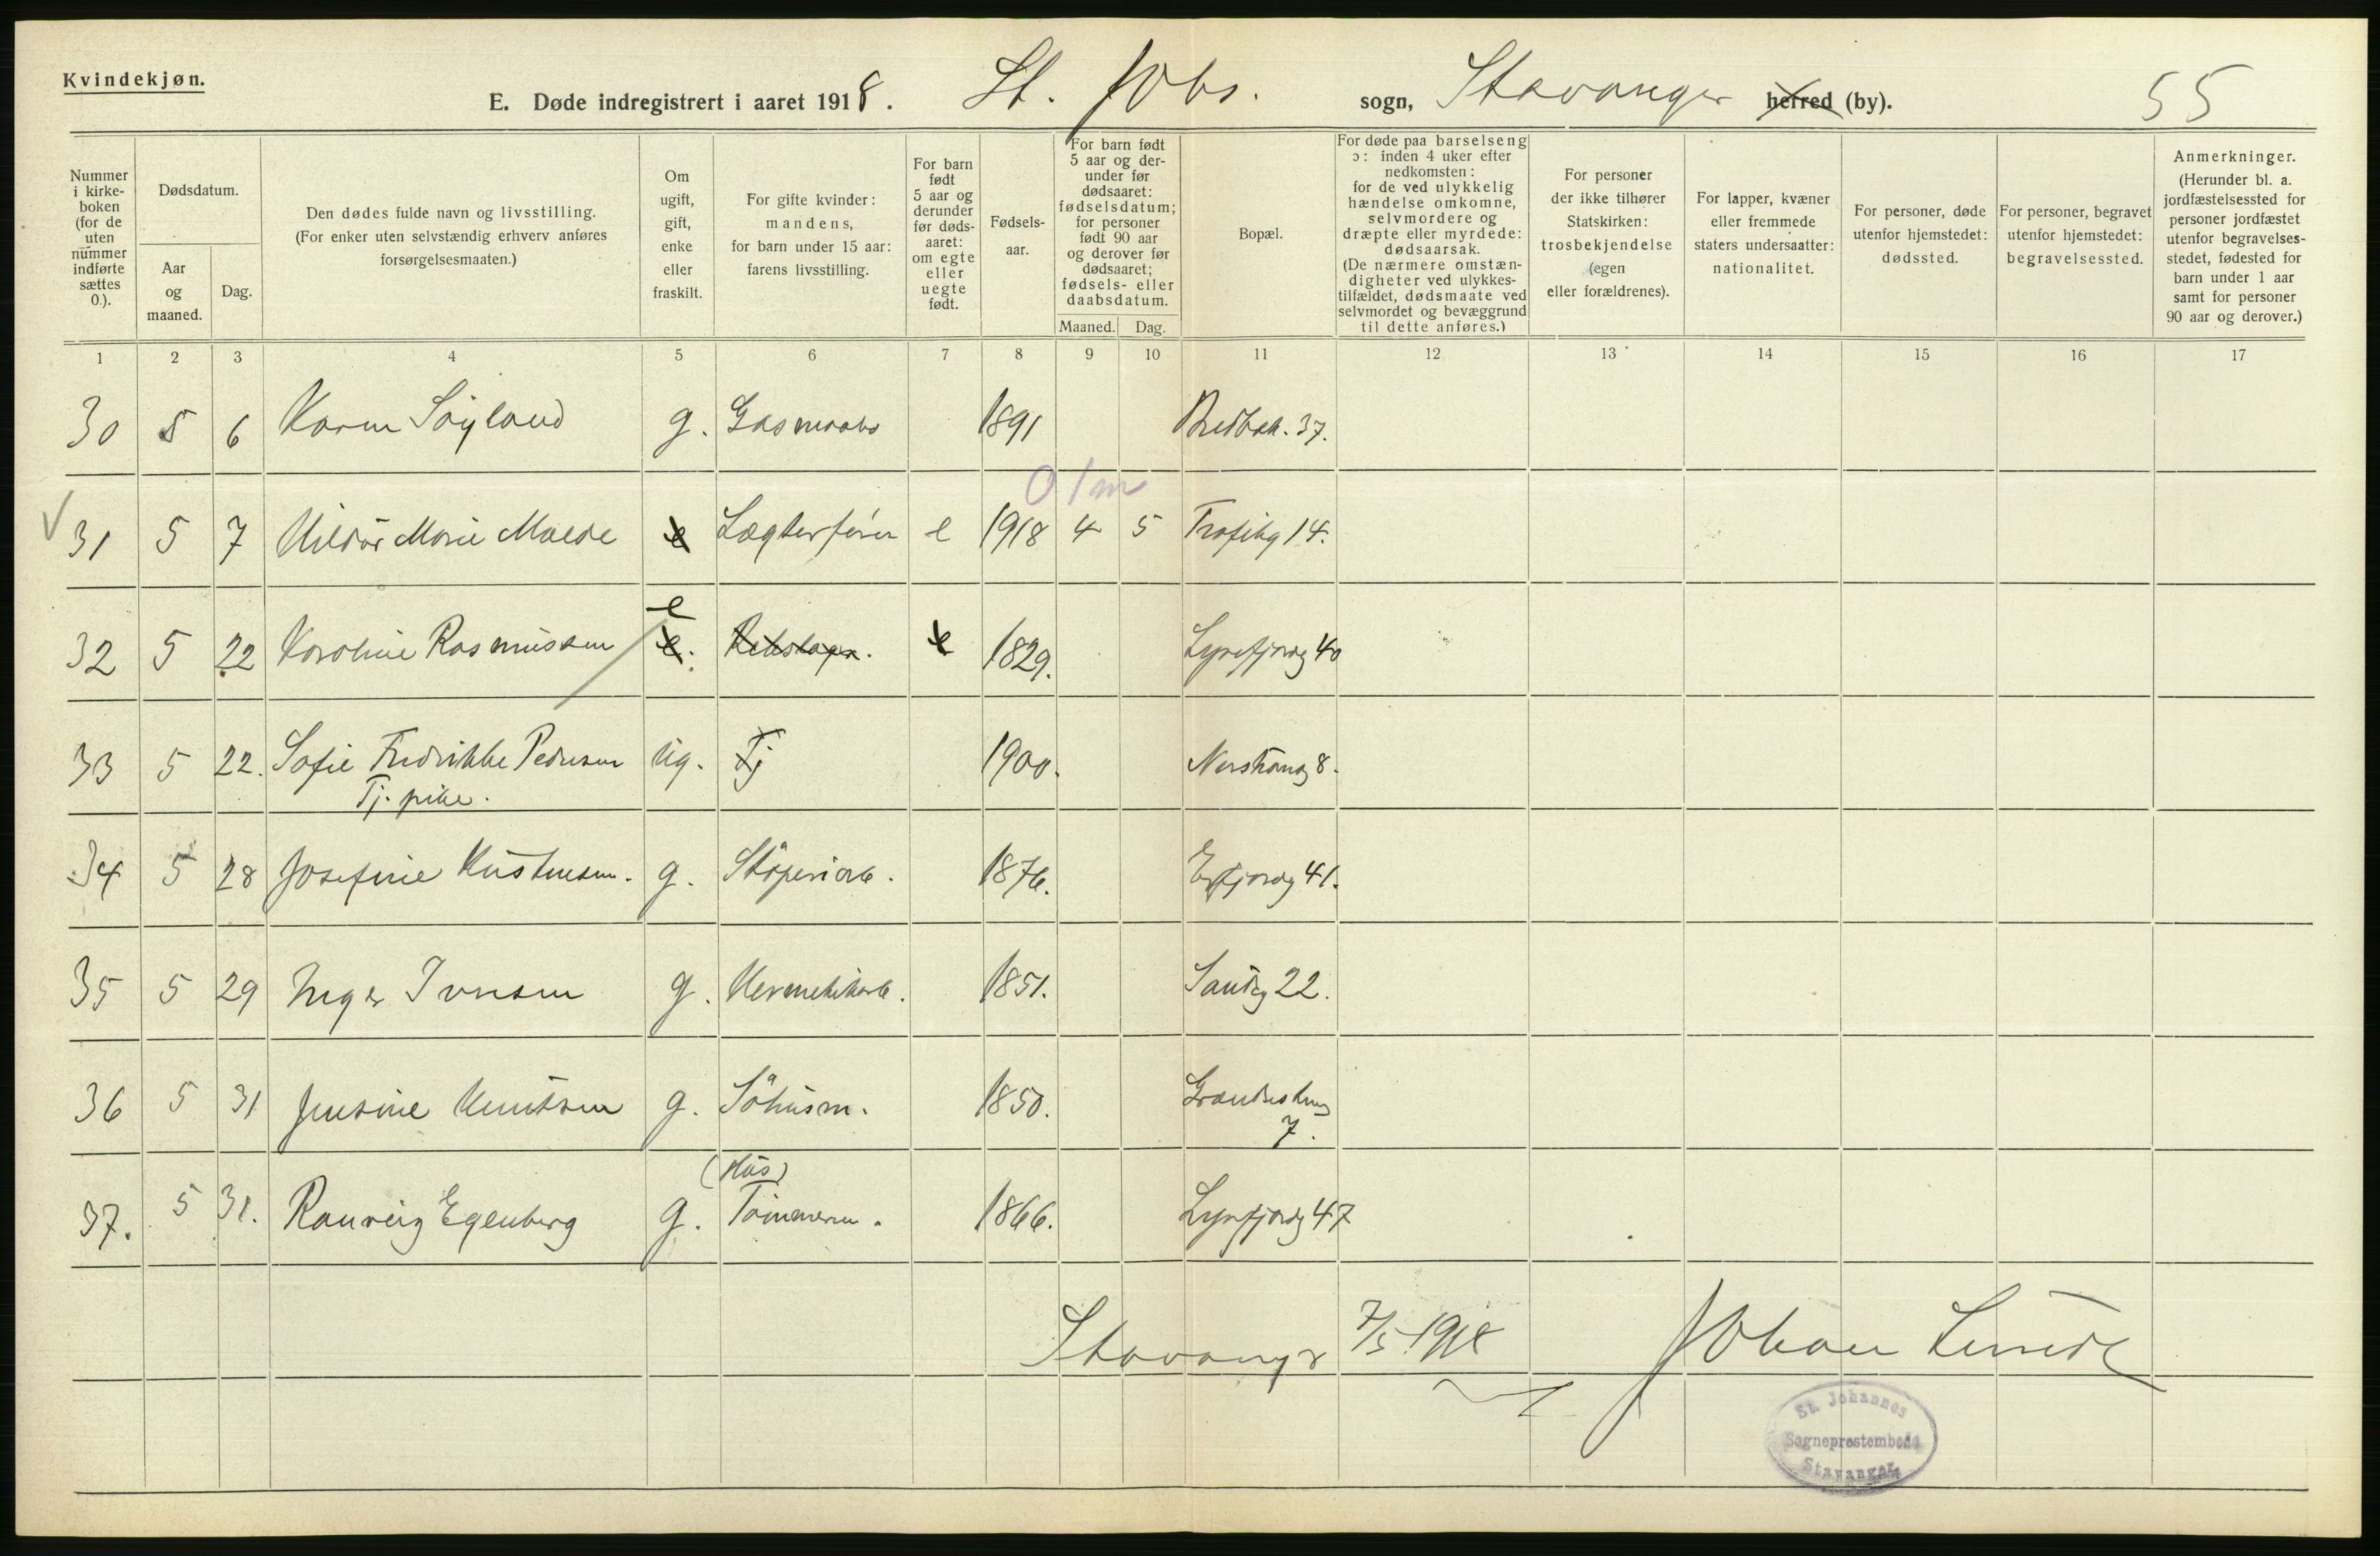 Kvindekjøn.
E. Døde indregistrert i aaret 1918. St. Johs. sogn, Stavanger herred (by). 55
Nummer i kirkeboken (for de uten nummer indførte sættes 0.).
Dødsdatum.
Aar og maaned.
Dag.
Den dødes fulde navn og livsstilling.
(For enker uten selvstændig erhverv anføres forsørgelsesmaaten.)
Om ugift, gift, enke eller fraskilt.
For gifte kvinder: mandens, for barn under 15 aar: farens livsstilling.
For barn født 5 aar og derunder før dødsaaret: om egte eller uegte født.
Fødselsaar.
For barn født 5 aar og derunder før dødsaaret: fødselsdatum; for personer født 90 aar og derover før dødsaaret; fødsels- eller daabsdatum.
Maaned. Dag.
Bopæl.
For døde paa barselseng ɔ: inden 4 uker efter nedkomsten: for de ved ulykkelig hændelse omkomne, selvmordere og dræpte eller myrdede: dødsaarsak. (De nærmere omstændigheter ved ulykkestilfældet, dødsmaate ved selvmordet og bevæggrund til dette anføres.)
For personer der ikke tilhører Statskirken: trosbekjendelse (egen eller forældrenes).
For lapper, kvæner eller fremmede staters undersaatter: nationalitet.
For personer, døde utenfor hjemstedet: dødssted.
For personer, begravet utenfor hjemstedet: begravelsessted.
Anmerkninger. (Herunder bl. a. jordfæstelsessted for personer jordfæstet utenfor begravelsesstedet, fødested for barn under 1 aar samt for personer 90 aar og derover.)
1 2 3 4 5 6 7 8 9 10 11 12 13 14 15 16 17
30 5 6 Karen Søyland g. 1891 Bredbak. 37.
0 1m
31 5 7 Hildur Marie Malde e e 1918 4 5 14.
e
32 5 22 Karoline Rasmussen e. Rebslager. e 1829. Lysefjordg 40
33 5 22. Sofie Fredrikke Pedersen ug. Tj 1900. Nerstrandg 8.
Tj. pike.
34 5 28 Josefine Kristensen. g. Støperiarb. 1876. Erfjordg 41.
35 5 29 Inger Iversen g. Hermetikarb. 1851. Sandg 22.
36 5 31 Jensine Knutsen g. Söhusm. 1850. 7.
(Hus)
37. 5 31. Ranveig Egenberg g. Tömmerm. 1866. Lysefjordg 47
Stavanger 7/5 1918 Johan Lunde
St. Johannes
Sogneprestembede
Stavanger